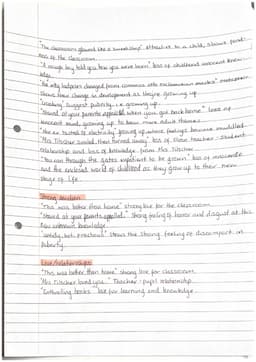 "The classroom glowed like a sweetshop" attractive to a child, shows fond-
ness of the classroom.
"A rough boy told you how you were born" loss of childhood innocent know-
ledge.
tadpoles changed from commas into exclamation marks" metaphor
shows how change in development as they're growing up.
suggest puberty i.e growing up.
"Stared at your parents appalled when you got back home" loss of
innocent mind, growing up to know more adult themes.
"the air tasted of electricity" growing up where feelings become muddled.
"Mrs Tilscher smiled then turned away" loss of close teacher-student
relationship and loss of knowledge from Mrs Tilscher.
"You ran through the gates impatient to be grown" loss of innocence
and the enclosed world of childhood as they grow up to their new
stage of life.
Strong emotion:
"This was better than home" strong love for the classroom.
"Stared at your parents, appalled" Strong feeling of horror and disgust at this
new unknown knowledge.
"untidy, hot, fractious" shows the strong feeling of discomfort in
puberty.
Love/relationships:
"This was better than home" strong love for classroom.
"Mrs Tilscher loved you." Teacher-pupil relationship.
"Enthralling books" love for learning and knowledge.